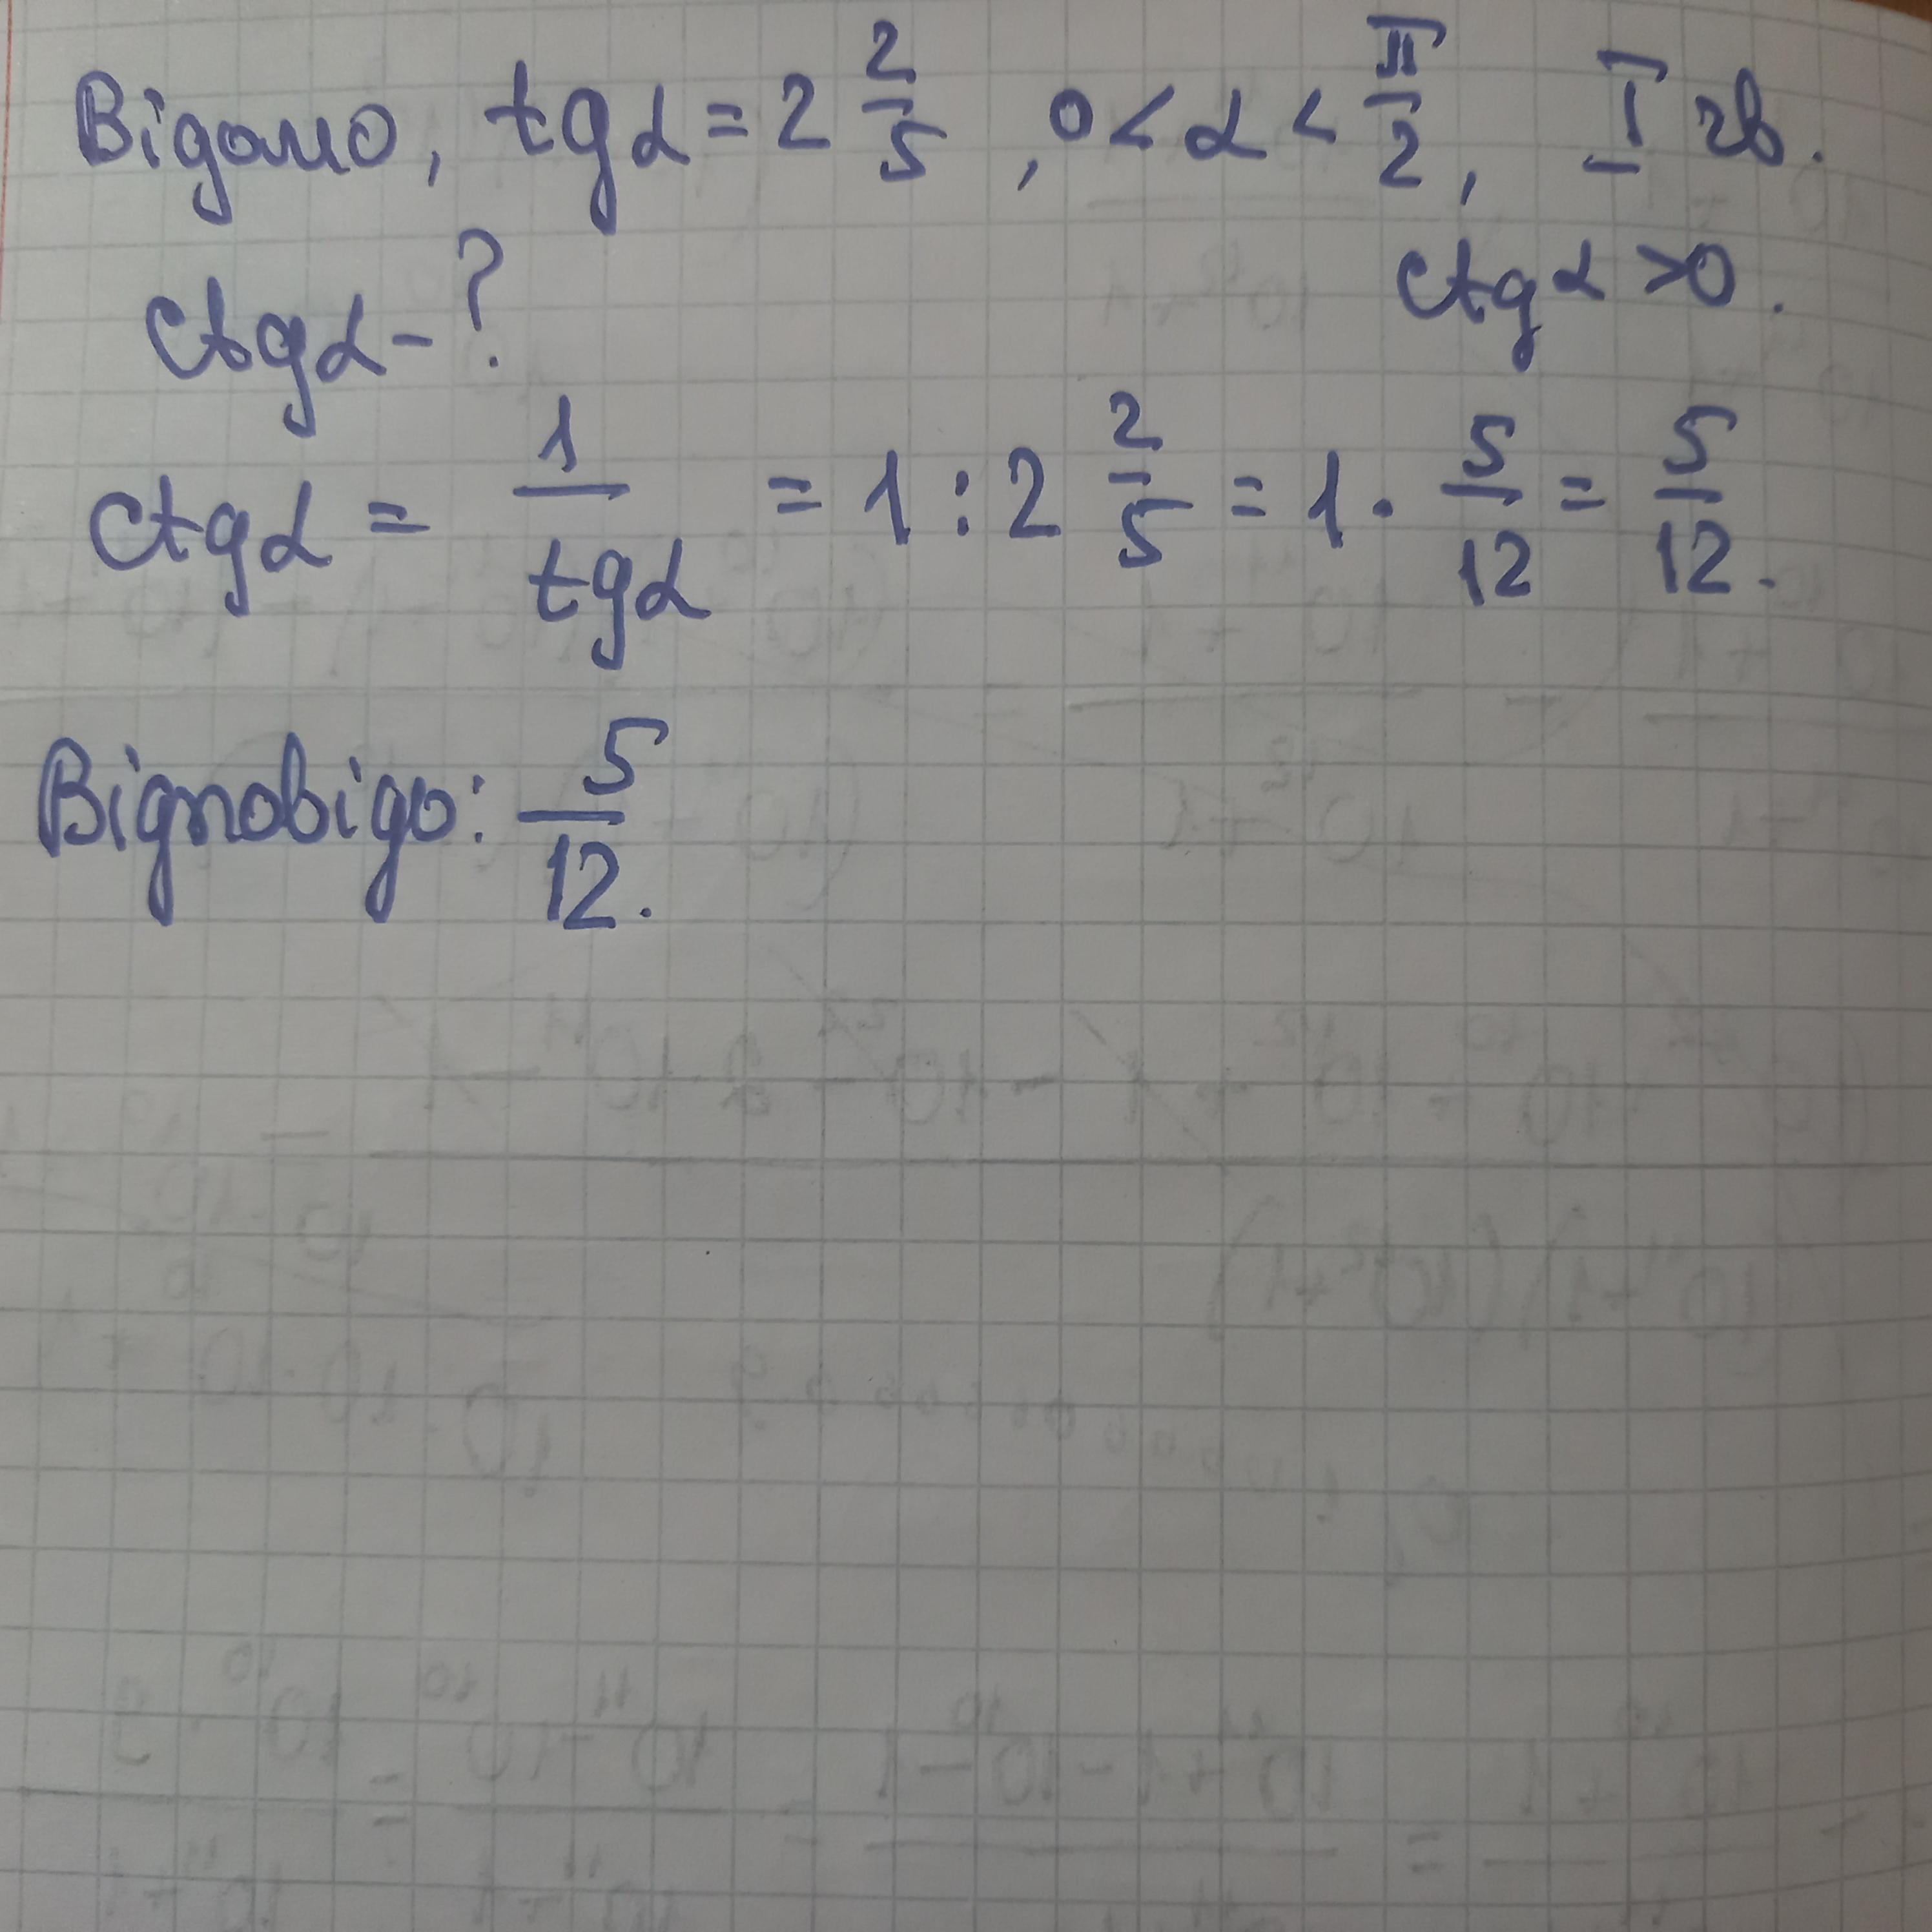 Відомо, tg α = 2 2/5, 0 < α < π/2, I чв.
ctg α - ? ctg α > 0.
ctg α = 1/tg α = 1 : 2 2/5 = 1 · 5/12 = 5/12.
Відповідь: 5/12.